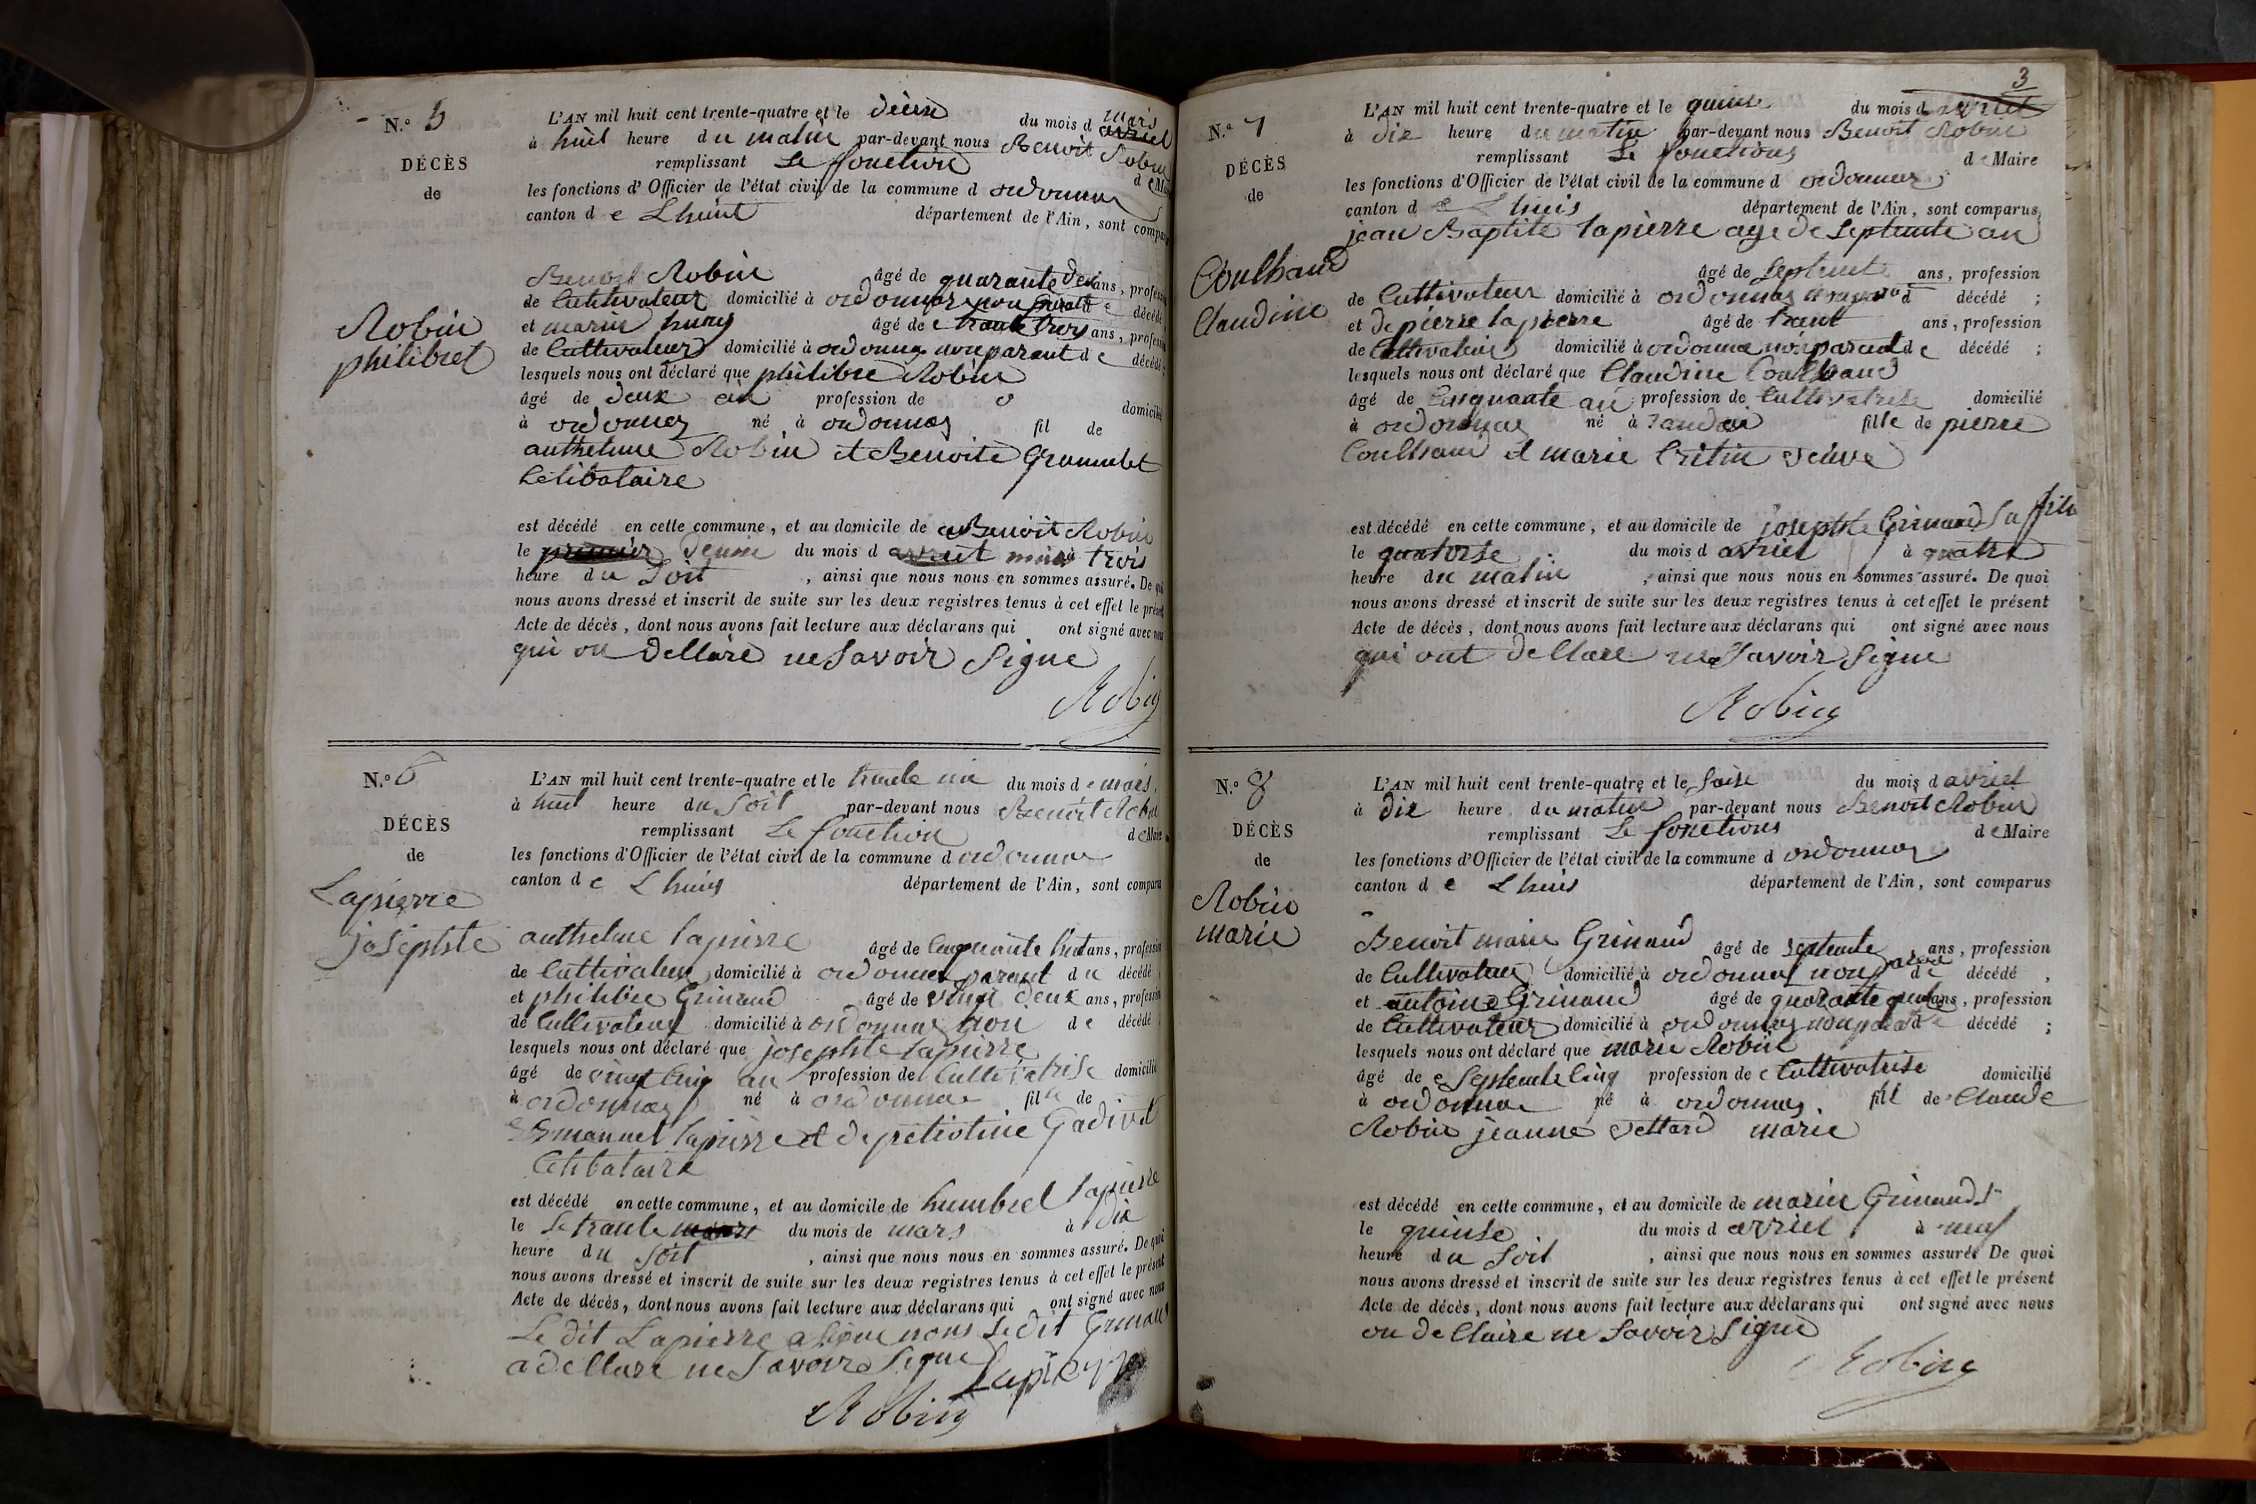 N.o 5
DÉCÈS
de
Robin
philibret
L'AN mil huit cent trente-quatre et le du mois d mars avriel
à huit heure du matin par-devant nous Benoit Robin
remplissant Le fonction de Maire
les fonctions d'Officier de l'état civil de la commune d ordonnas
canton de Lhuint département de l'Ain, sont comparus
Benoit Robin âgé de quarante ans, profession
de Cultivateur domicilié à ordonnas non parant de décédé
et marin âgé de trante trois ans, profession
de Cultivateur domicilié à ordonna non parant de décédé;
lesquels nous ont déclaré que philibre Robin
âgé de deux an profession de domicilié
à ordonnas né à ordonnas fil de
anthelme Robin et Benoite Grumulet
Celibataire
est décédé en cette commune, et au domicile de Benoit Robin
le premier du mois d avriel mars à trois
heure du Soit, ainsi que nous nous en sommes assuré. De qui
nous avons dressé et inscrit de suite sur les deux registres tenus à cet effet le présent
Acte de décès, dont nous avons fait lecture aux déclarans qui ont signé avec nous
qui on dellare ne Savoir Signe
Robin
N.o 6
DÉCÈS
de
Lapierre
josephte
L'AN mil huit cent trente-quatre et le trante un du mois de mars,
à huit heure du Soit par-devant nous Benoit Robin
remplissant Le fonction de Maire
les fonctions d'Officier de l'état civil de la commune d ordonnas
canton de Lhuis département de l'Ain, sont comparu
anthelme lapierre âgé de Cinquante huit ans, profession
de Cultivateur domicilié à ordonnas parant du décédé
et philibre Grinand âgé de vingt deux ans, profession
de Cultivateur domicilié à ordonnas non de décédé
lesquels nous ont déclaré que josephte lapierre
âgé de vingt cinq an profession de Cultivatrise domicilié
à ordonnas né à ordonnas fille de
Emanuel lapierre et de Gadivet
Celibataire
est décédé en cette commune, et au domicile de humbrel lapierre
le Le trante mars du mois de mars à dix
heure du Soit, ainsi que nous nous en sommes assuré. De quoi
nous avons dressé et inscrit de suite sur les deux registres tenus à cet effet le présent
Acte de décès, dont nous avons fait lecture aux déclarans qui ont signé avec nous
Le dit Lapierre a Signe nous Ledit Grinand
a dellare ne Savoire Signe
Lapierre
Robin
3
N.o 7
DÉCÈS
de
Coulhaud
Claudine
L'AN mil huit cent trente-quatre et le quinse du mois d avriel
à dix heure du matin par-devant nous Benoit Robin
remplissant Le fonctions de Maire
les fonctions d'Officier de l'état civil de la commune d ordonnas
canton de Lhuis département de l'Ain, sont comparus
jean Baptite lapierre age de Septente an
âgé de Septente ans, profession
de Cultivateur domicilié à ordonnas d décédé;
et de pierre lapierre âgé de trent ans, profession
de Cultivateur domicilié à ordonna non parent de décédé;
lesquels nous ont déclaré que Claudine Coulhaud
âgé de Cinquante an profession de Cultivatrise domicilié
à ordonnas né à fille de pierre
Coulhaud et marie Critin veuve
est décédé en cette commune, et au domicile de josephte Grinand Sa fille
le quatorse du mois d avriel à quatre
heure du matin, ainsi que nous nous en sommes assuré. De quoi
nous avons dressé et inscrit de suite sur les deux registres tenus à cet effet le présent
Acte de décès, dont nous avons fait lecture aux déclarans qui ont signé avec nous
qui ont dellare ne Savoir Signe
Robin
N.o 8
DÉCÈS
de
Robin
marie
L'AN mil huit cent trente-quatre et le Saise du mois d avriel
à dix heure du matin par-devant nous Benoit Robin
remplissant Le fonctions de Maire
les fonctions d'Officier de l'état civil de la commune d ordonnas
canton de Lhuis département de l'Ain, sont comparus
Benoit marie Grinand âgé de septente ans, profession
de Cultivateur domicilié à ordonnas non parent de décédé,
et antoine Grinand âgé de quarante ans, profession
de Cultivateur domicilié à ordonnas non parent de décédé;
lesquels nous ont déclaré que marie Robin
âgé de Septente Cinq profession de Cultivatrise domicilié
à ordonnas né à ordonnas. fill de Claude
Robin jeanne vettard marie
est décédé en cette commune, et au domicile de marin Grinand
le quinse du mois d avriel à neuf
heure du Soit, ainsi que nous nous en sommes assuré. De quoi
nous avons dressé et inscrit de suite sur les deux registres tenus à cet effet le présent
Acte de décès, dont nous avons fait lecture aux déclarans qui ont signé avec nous
on de Claire ne Savoir Signe
Robin